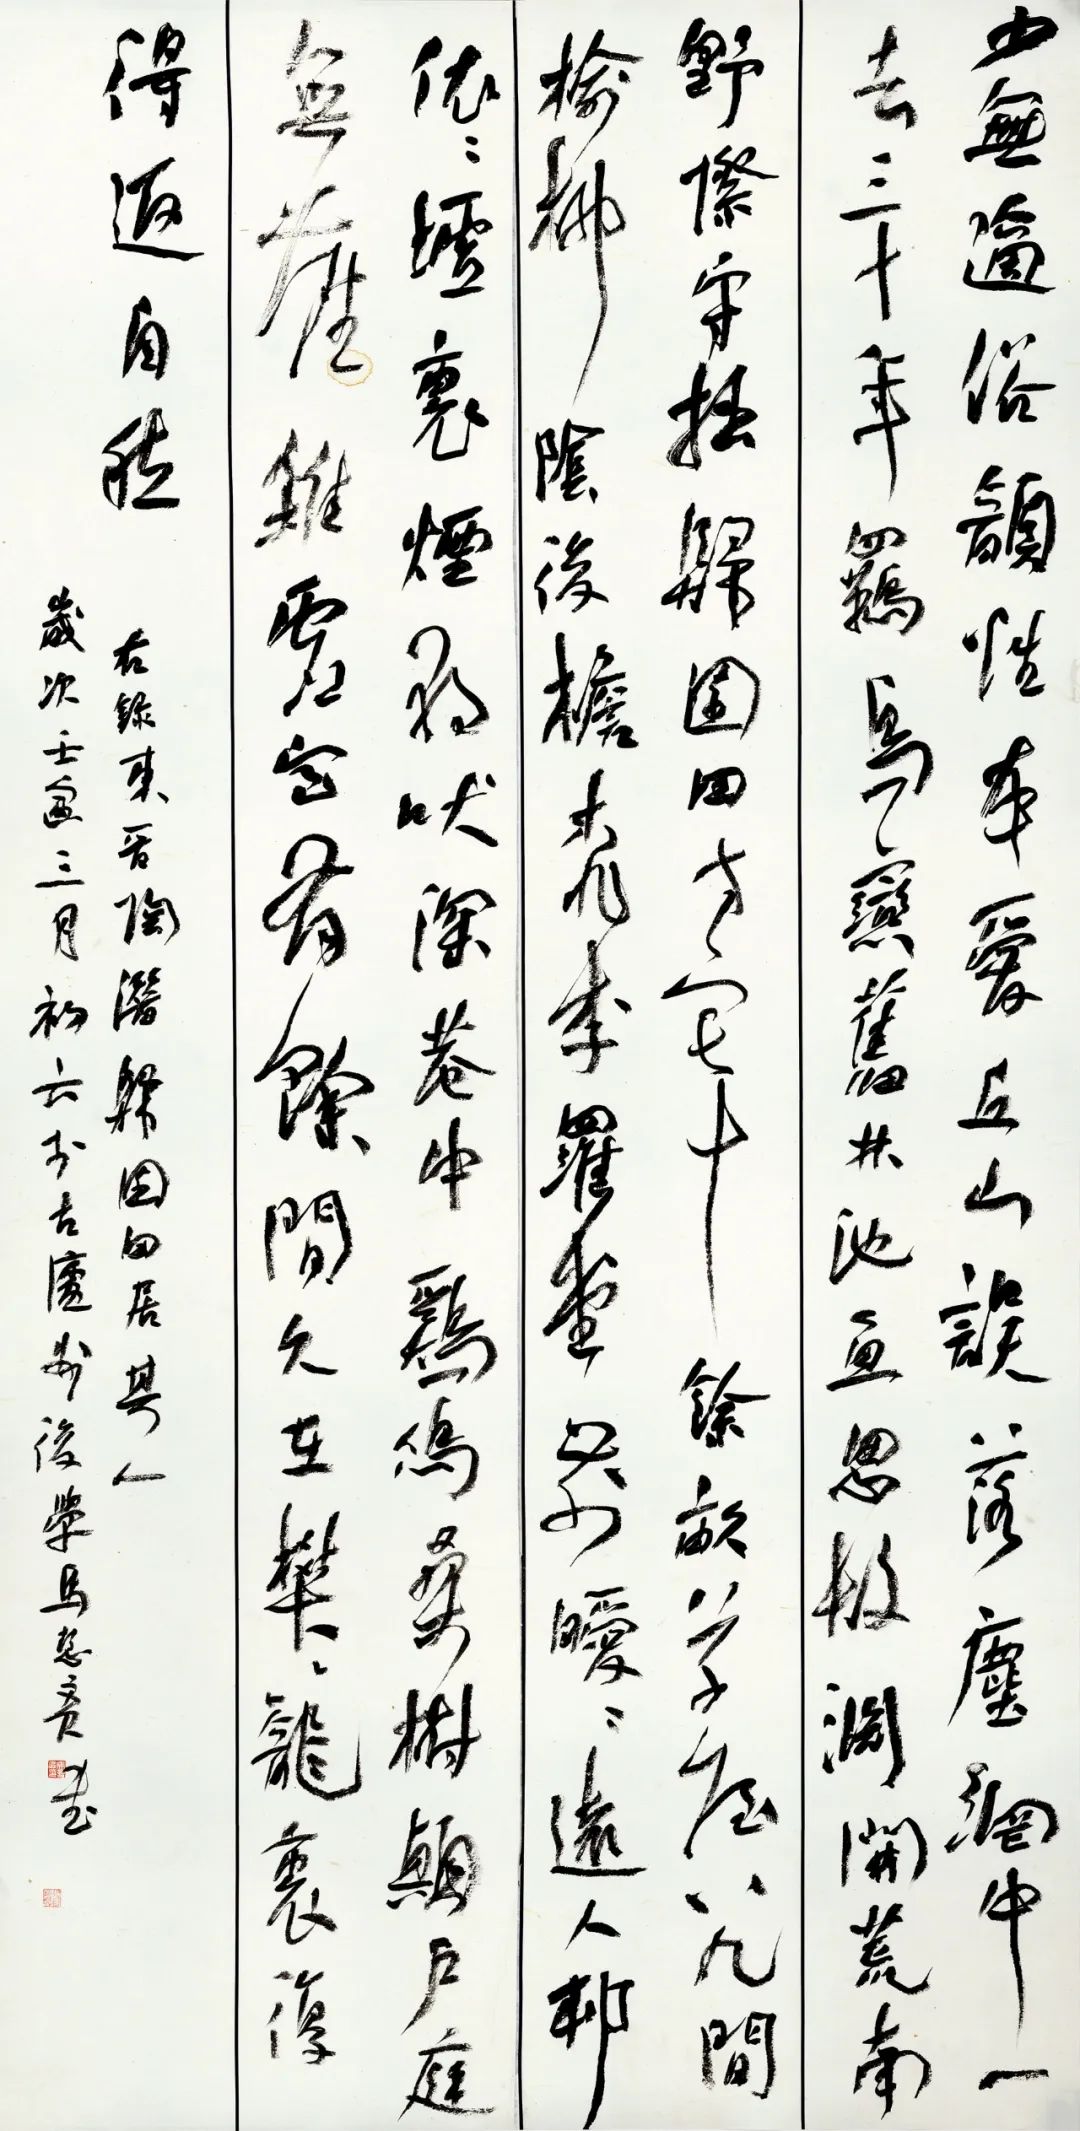 少無適俗韻性本愛丘山誤落塵網中一
去三十年羈鳥戀舊林池魚思故淵開荒南
野際守拙歸園田方宅十餘畝草屋八九間
榆柳陰後檐桃李羅堂前曖〻遠人邨
依〻墟裏煙狗吠深巷中鷄鳴桑樹顛戶庭
無塵雜虛室有餘間久在樊籠裏復
得返自然
右錄東晉陶潛歸園田居其一
歲次壬寅三月初六於古廬州後學馬書